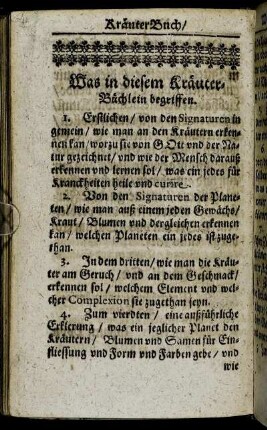 KräuterBuch/
Was in diesem Kräuter-
Büchlein begriffen.
1. Erstlichen / von den Signaturen in
gemein / wie man an den Kräutern erken-
nen kan / worzu sie von GOtt und der Na-
tur gezeichnet / und wie der Mensch darauß
erkennen und lernen sol / was ein jedes für
Kranckheiten heile und curire.
2. Von den Signaturen der Plane-
ten / wie man auß einem jeden Gewächs/
Kraut / Blumen und dergleichen erkennen
kan / welchen Planeten ein jedes ist zuge-
than.
3. In dem dritten / wie man die Kräu-
ter am Geruch / und an dem Geschmack/
erkennen sol / welchem Element und wel-
cher Complexion sie zugethan seyn.
4. Zum vierdten / eine außführliche
Erklerung / was ein jeglicher Planet den
Kräutern / Blumen und Samen für Ein-
fliessung und Form und Farben gebe / und
wie